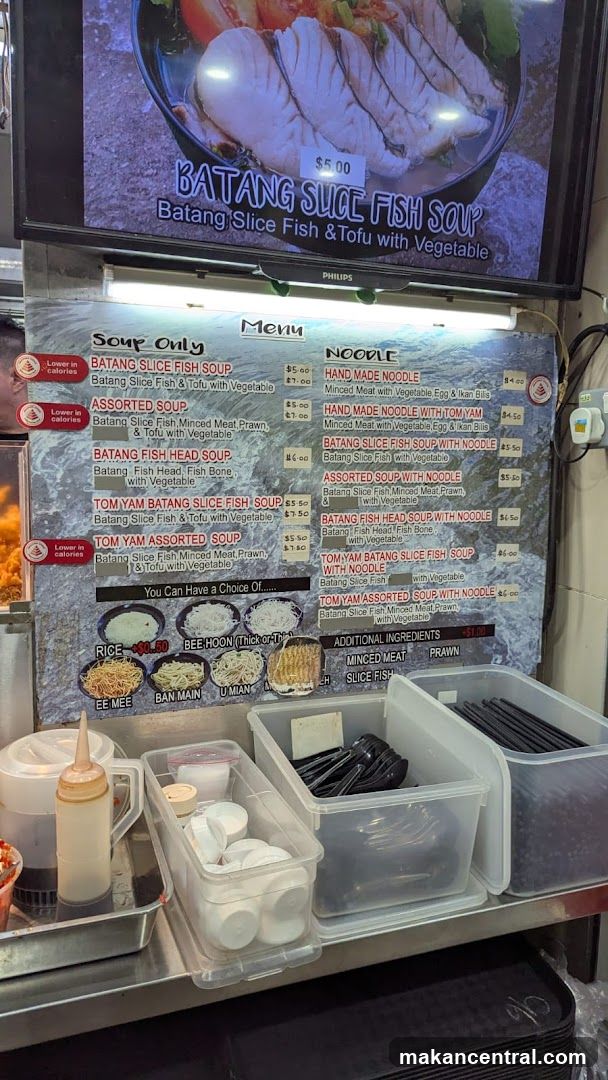 $5.00
BATANG SLICE FISH SOUP
Batang Slice Fish & Tofu with Vegetable
PHILIPS
Menu
Soup Only
Lower in calories
BATANG SLICE FISH SOUP
$5.00
$7.00
Batang Slice Fish & Tofu with Vegetable
Lower in calories
ASSORTED SOUP
$5.00
$7.00
Batang Slice Fish,Minced Meat,Prawn,
& Tofu with Vegetable
BATANG FISH HEAD SOUP
$6.00
Batang Fish Head, Fish Bone,
with Vegetable
TOM YAM BATANG SLICE FISH SOUP
$5.50
$7.50
Batang Slice Fish & Tofu with Vegetable
Lower in calories
TOM YAM ASSORTED SOUP
$5.50
$7.50
Batang Slice Fish,Minced Meat,Prawn,
& Tofu with Vegetable
NOODLE
HAND MADE NOODLE
$4.00
Minced Meat with Vegetable,Egg & Ikan Bilis
HAND MADE NOODLE WITH TOM YAM
$4.50
Minced Meat with Vegetable,Egg & Ikan Bilis
BATANG SLICE FISH SOUP WITH NOODLE
$5.50
Batang Slice Fish with Vegetable
ASSORTED SOUP WITH NOODLE
$5.50
Batang Slice Fish,Minced Meat,Prawn,
& with Vegetable
BATANG FISH HEAD SOUP WITH NOODLE
$6.50
Batang Fish Head, Fish Bone
with Vegetable
TOM YAM BATANG SLICE FISH SOUP
WITH NOODLE
$6.00
Batang Slice Fish with Vegetable
TOM YAM ASSORTED SOUP WITH NOODLE
$6.00
Batang Slice Fish,Minced Meat,Prawn,
with Vegetable
You Can Have a Choice Of......
RICE +$0.50
BEE HOON (Thick or Thin)
EE MEE
BAN MAIN
U MIAN
ADDITIONAL INGREDIENTS +$1.00
MINCED MEAT
PRAWN
SLICE FISH
makancentral.com